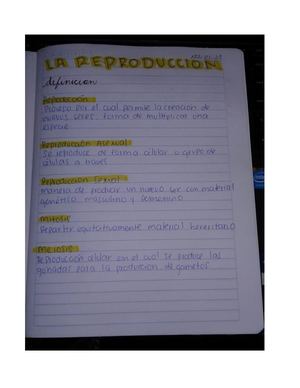 LA REPRODUCCION
definicion
Reproducción
Proceso por el cual permite la creación de
nuevos seres, forma de multiplicar una
especie
Reproducción Asexual
Se reproduce de forma célular o grupo de
células a través
Reproducción Sexual
manera de producir un nuevo ser con material
genético masculino y femenino
Mitosis
Repartir equitativamente material hereditario
Meiosis
Reproducción célular en el cual se produce las
gónadas para la producción de gametos